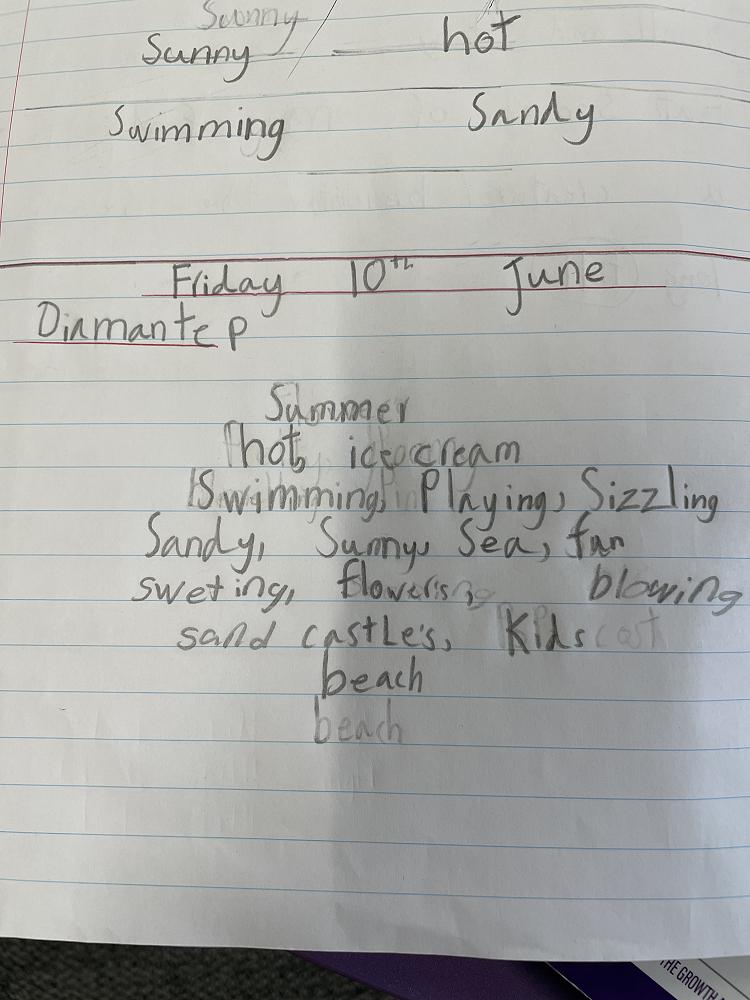 Sunny
Sunny hot
Swimming Sandy
Friday 10th June
Diamante p
Summer
hot, ice cream
Swimming, Playing, Sizzling
Sandy, Sunny, Sea, fun
sweting, flowers, blowing
sand castle's, Kids
beach
beach
THE GROWTH